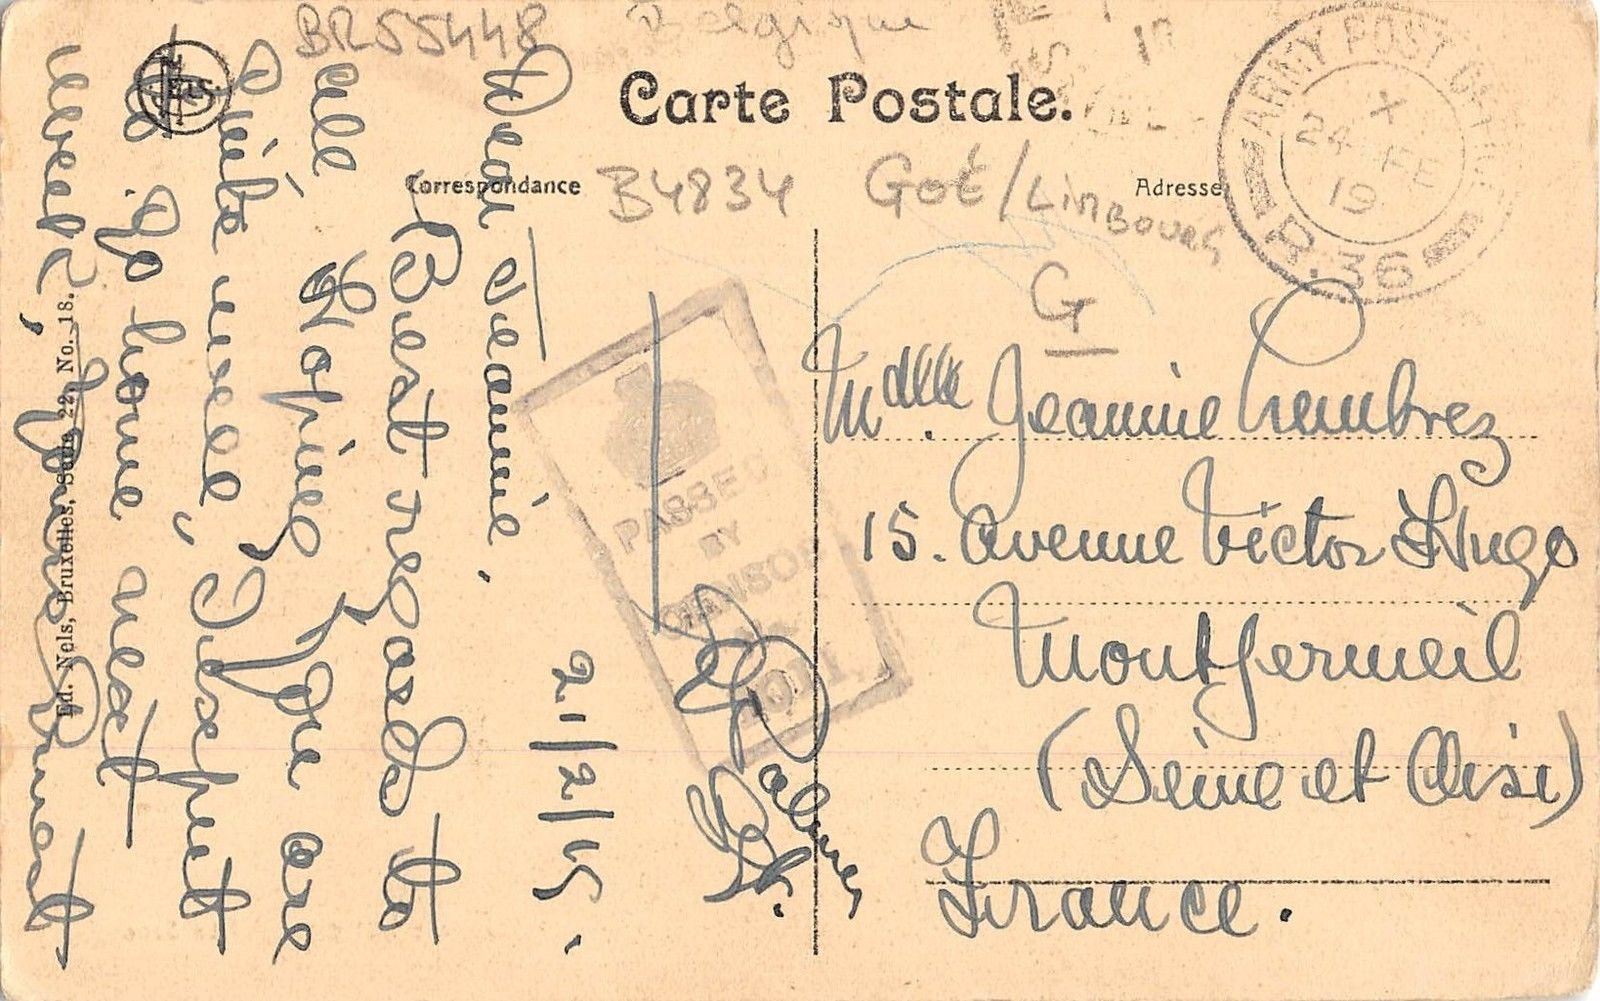 BR55448 Belgique
Carte Postale.
Correspondance
Adresse
B4834 Goé/Limbourg
G
ARMY POST OFFICE
X
24 FE
19
R.36
PASSED
BY
CENSOR
Ed. Nels, Bruxelles, Série 22, No. 18.
NELS
21/2/19.
Dear Jeannie.
Best regards to
all Hoping you are
quite well, I expect
to go home next
week,
Palmer
Mdelle. Jeannine
15. Avenue Victor Hugo
Montfermeil
(Seine et Oise)
France.